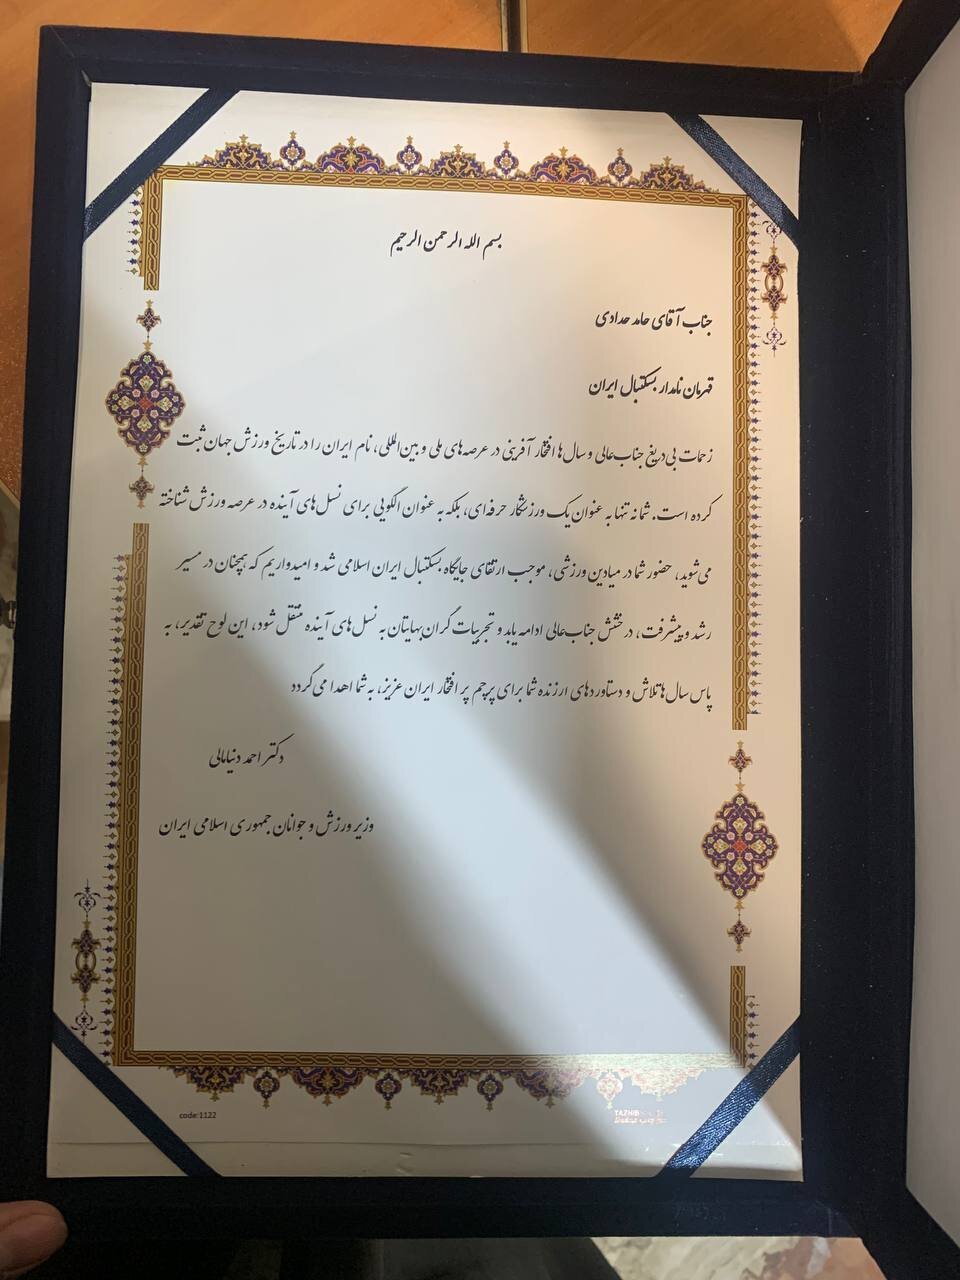 بسم الله الرحمن الرحیم
جناب آقای حامد حدادی
قهرمان نامدار بسکتبال ایران
زحمات بی‌دریغ جناب‌عالی و سال‌ها افتخار آفرینی در عرصه‌های ملی و بین‌المللی، نام ایران را در تاریخ ورزش جهان ثبت
کرده است. شما نه تنها به عنوان یک ورزشکار حرفه‌ای، بلکه به عنوان الگویی برای نسل‌های آینده در عرصه ورزش شناخته
می‌شوید، حضور شما در میادین ورزشی، موجب ارتقای جایگاه بسکتبال ایران اسلامی شد و امیدواریم که همچنان در مسیر
رشد و پیشرفت، درخشش جناب‌عالی ادامه یابد و تجربیات گران‌بهایتان به نسل‌های آینده منتقل شود، این لوح تقدیر، به
پاس سال‌ها تلاش و دستاوردهای ارزنده شما برای پرچم پر افتخار ایران عزیز، به شما اهدا می‌گردد
دکتر احمد دنیامالی
وزیر ورزش و جوانان جمهوری اسلامی ایران
code:1122
TAZHIB